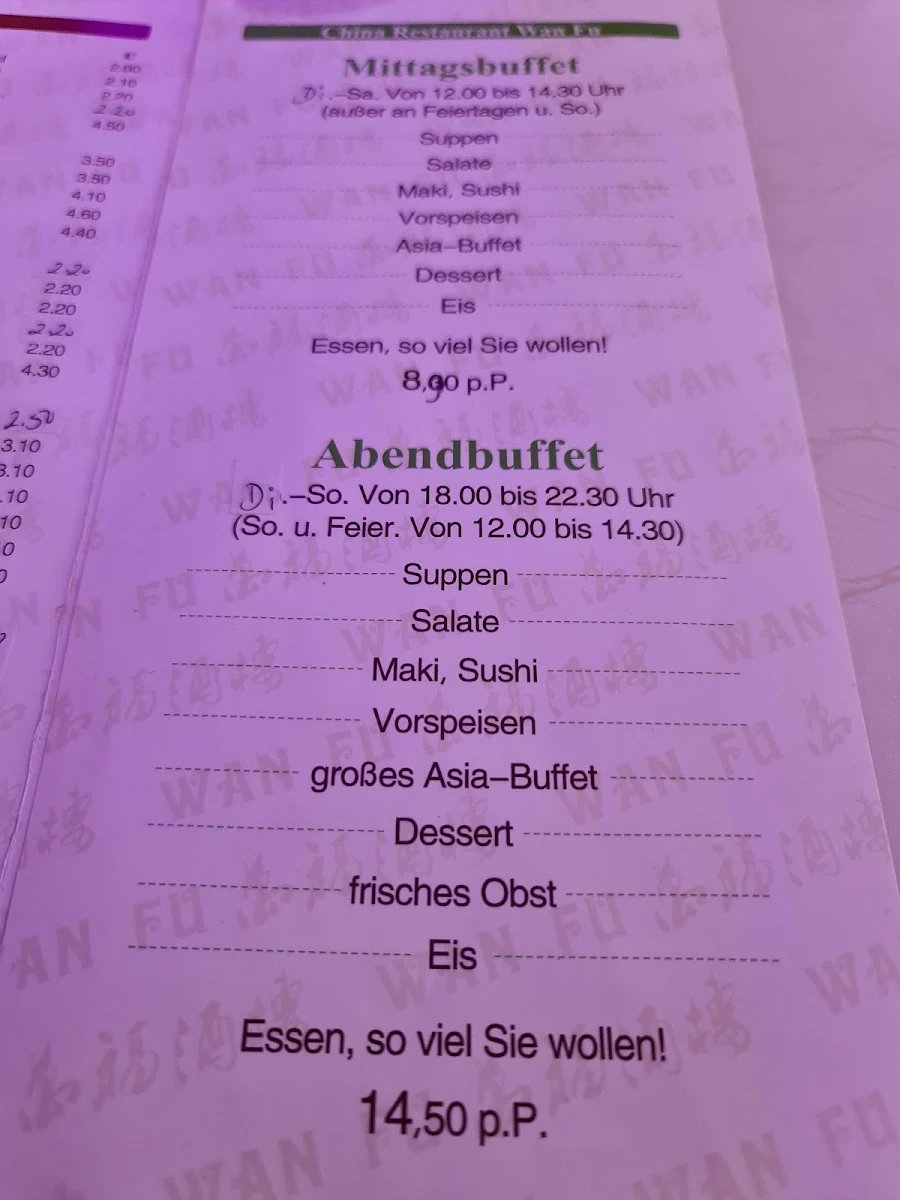 €
2.00
2.10
2.20
2.20
4.50
3.50
3.50
4.10
4.60
4.40
2.20
2.20
2.20
2.20
2.20
4.30
2.50
3.10
3.10
.10
10
0
China Restaurant Wan Fu
Mittagsbuffet
Di.–Sa. Von 12.00 bis 14.30 Uhr
(außer an Feiertagen u. So.)
Suppen
Salate
Maki, Sushi
Vorspeisen
Asia–Buffet
Dessert
Eis
Essen, so viel Sie wollen!
8,90 p.P.
Abendbuffet
Di.–So. Von 18.00 bis 22.30 Uhr
(So. u. Feier. Von 12.00 bis 14.30)
Suppen
Salate
Maki, Sushi
Vorspeisen
großes Asia–Buffet
Dessert
frisches Obst
Eis
Essen, so viel Sie wollen!
14,50 p.P.
WAN FU